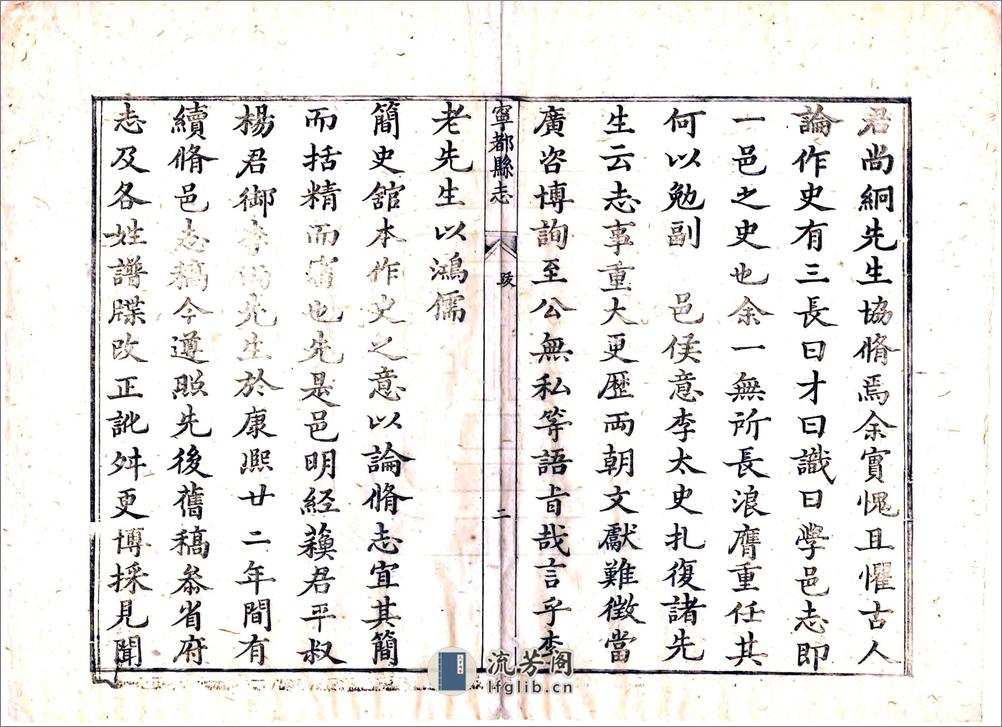 君尚絅先生協脩焉余實愧且懼古人
論作史有三長曰才曰識曰學邑志即
一邑之史也余一無所長浪膺重任其
何以勉副　邑侯意李太史扎復諸先
生云志事重大更歷両朝文獻難徵當
廣咨博詢至公無私等語旨哉言乎李
寧都縣志
跋
二
老先生以鴻儒
簡史舘本作史之意以論脩志宜其簡
而括精而覈也先是邑明經蘋君平叔
楊君御李先生於康熙廿二年間有
續脩邑志稿今遵照先後舊稿叅省府
志及各姓譜牒改正訛舛更博採見聞
流芳阁
lfglib.cn